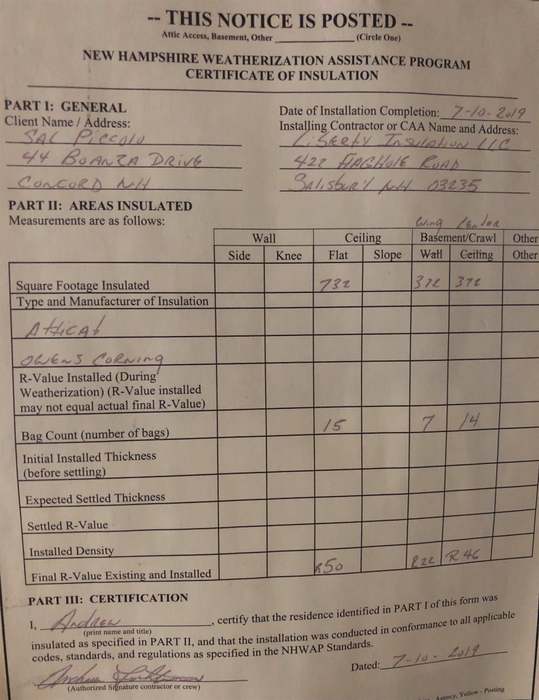 -- THIS NOTICE IS POSTED --
Attic Access, Basement, Other (Circle One)
NEW HAMPSHIRE WEATHERIZATION ASSISTANCE PROGRAM
CERTIFICATE OF INSULATION
PART I: GENERAL
Client Name / Address:
SAL PICCOLO
44 BOANZA DRIVE
CONCORD NH
Date of Installation Completion: 7-10-2019
Installing Contractor or CAA Name and Address:
Liberty Insulation LLC
422 ROAD
Salisbury NH 03235
PART II: AREAS INSULATED
Measurements are as follows:
Wall Ceiling Basement/Crawl Other
Side Knee Flat Slope Wall Ceiling Other
Square Footage Insulated 732 372 372
Type and Manufacturer of Insulation
Atticat
OWENS CORNING
R-Value Installed (During
Weatherization) (R-Value installed
may not equal actual final R-Value)
Bag Count (number of bags) 15 7 14
Initial Installed Thickness
(before settling)
Expected Settled Thickness
Settled R-Value
Installed Density
Final R-Value Existing and Installed R50 R22 R46
PART III: CERTIFICATION
I, Andrew, certify that the residence identified in PART I of this form was
(print name and title)
insulated as specified in PART II, and that the installation was conducted in conformance to all applicable
codes, standards, and regulations as specified in the NHWAP Standards.
Dated: 7-10-2019
(Authorized Signature contractor or crew)
Yellow - Posting